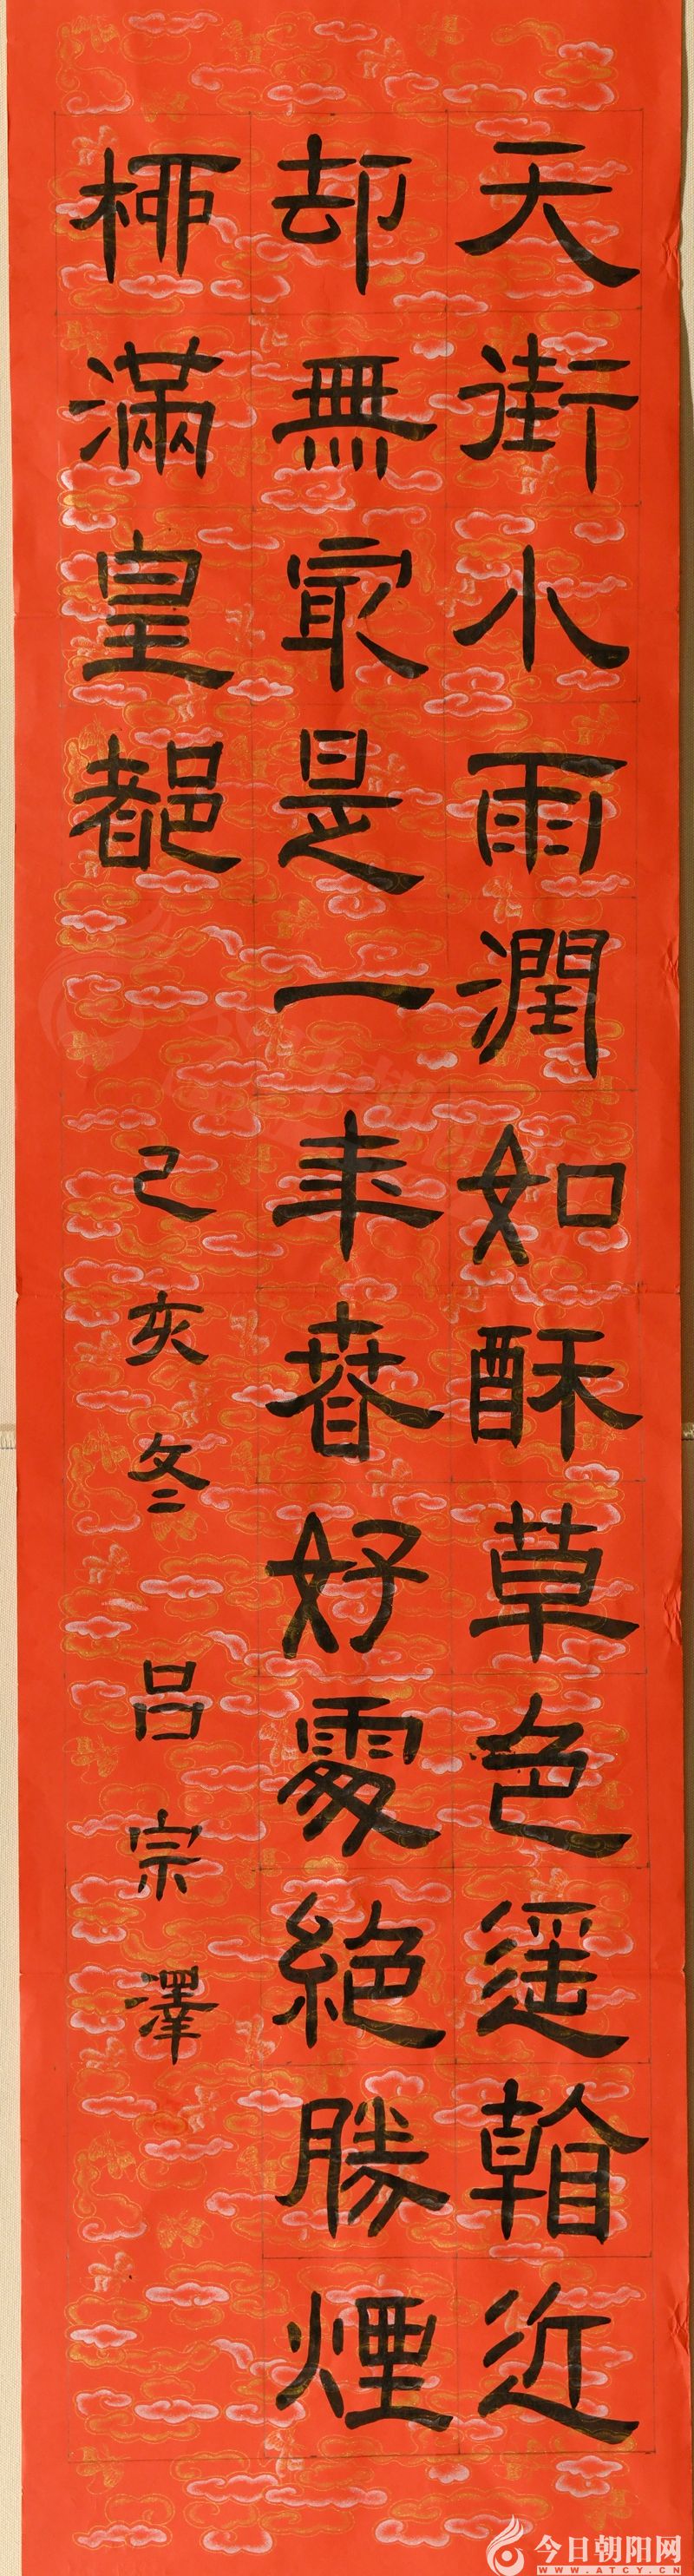 天街小雨潤如酥草色遥看近
却無最是一年春好處絶勝煙
柳滿皇都 己亥冬 吕宗澤
今日朝阳网
WWW.ATCY.CN